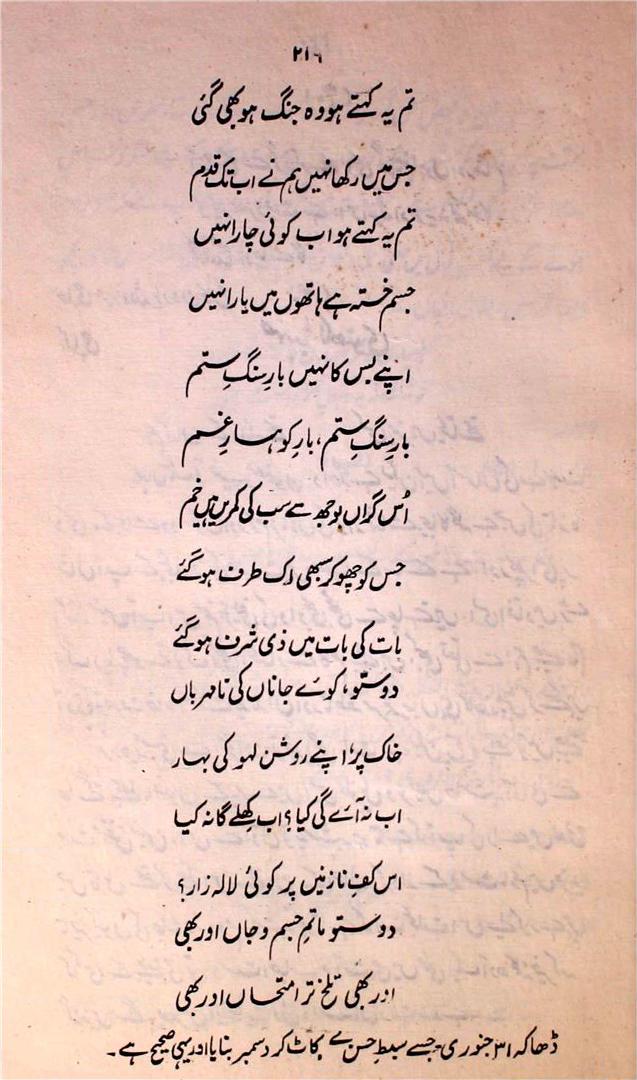 ۲۱۶
تم یہ کہتے ہو وہ جنگ ہو بھی گئی
جس میں رکھا نہیں ہم نے اب تک قدم
تم یہ کہتے ہو اب کوئی چارا نہیں
جسم خستہ ہے ہاتھوں میں یارا نہیں
اپنے بس کا نہیں بارِ سنگِ ستم
بارِ سنگِ ستم، بارِ کوہسارِ غم
اُس گراں بوجھ سے سب کی کمریں ہیں خم
جس کو چھو کر سبھی اک طرف ہوگئے
بات کی بات میں ذی شرف ہوگئے
دوستو، کوئے جاناں کی نامہرباں
خاک پر اپنے روشن لہو کی بہار
اب نہ آئے گی کیا؟ اب کِھلے گا نہ کیا
اس کفِ نازنیں پر کوئی لالہ زار؟
دوستو ماتمِ جسم و جاں اور بھی
اور بھی تلخ تر امتحاں اور بھی
ڈھاکہ ۳۱ جنوری جسے سبطِ حسن نے کاٹ کر دسمبر بنایا اور یہی صحیح ہے۔